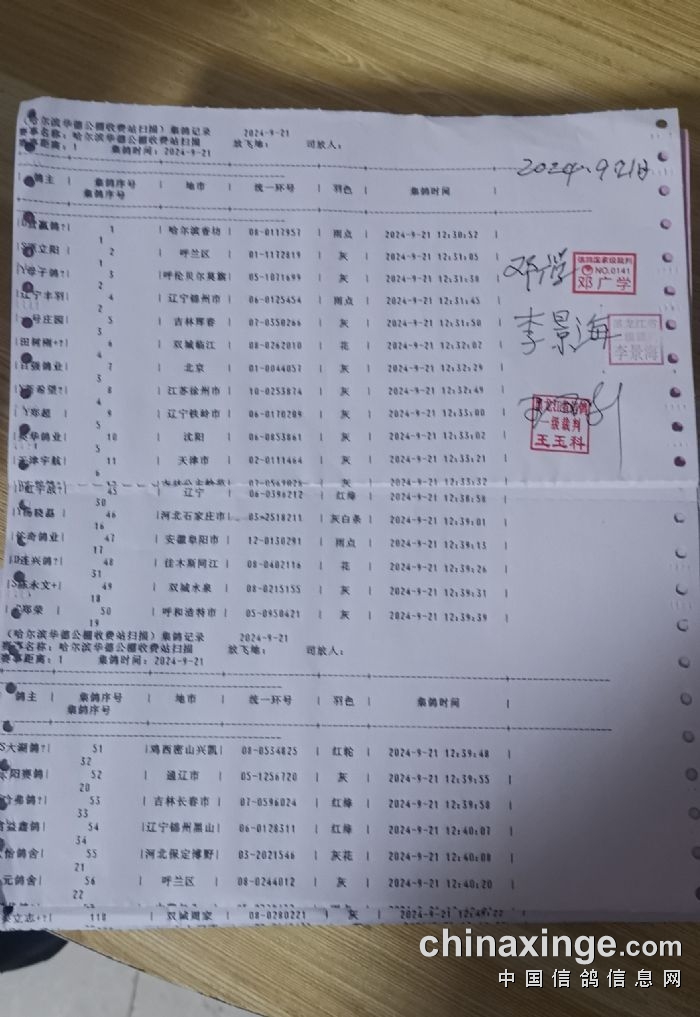 （哈尔滨华德公棚收费站扫描）集鸽记录 2024-9-21
赛事名称：哈尔滨华德公棚收费站扫描 放飞地： 司放人：
赛事距离：1 集鸽时间：2024-9-21
2024.9.21日
鸽主 | 集鸽序号 | 地市 | 统一环号 | 羽色 | 集鸽时间
集鸽序号
1 | 哈尔滨香坊 | 08-0117957 | 雨点 | 2024-9-21 12:30:52
1
立阳 2 | 呼兰区 | 01-1172819 | 灰 | 2024-9-21 12:31:05
2
母子鸽? 3 | 呼伦贝尔莫旗 | 05-1071699 | 灰 | 2024-9-21 12:31:38
辽宁丰羽 4 | 辽宁锦州市 | 06-0125454 | 雨点 | 2024-9-21 12:31:45
号庄园 5 | 吉林珲春 | 07-0350266 | 灰 | 2024-9-21 12:31:50
3
田树刚+? 6 | 双城临江 | 08-0262010 | 花 | 2024-9-21 12:32:02
4
强鸽业 7 | 北京 | 01-0044057 | 灰 | 2024-9-21 12:32:29
3
希望? 8 | 江苏徐州市 | 10-0253874 | 灰 | 2024-9-21 12:32:49
4
郑超 9 | 辽宁铁岭市 | 06-0170209 | 灰 | 2024-9-21 12:33:00
5
华鸽业 10 | 沈阳 | 06-0853861 | 灰 | 2024-9-21 12:33:02
5
天津宇航 11 | 天津市 | 02-0111464 | 灰 | 2024-9-21 12:33:21
6
12 07-0569028 灰 2024-9-21 12:33:32
45 | 辽宁 | 06-0396212 | 红绛 | 2024-9-21 12:38:58
30
杨晓磊 46 | 河北石家庄市 | 03-2518211 | 灰白条 | 2024-9-21 12:39:01
16
奇鸽业 47 | 安徽阜阳市 | 12-0130291 | 雨点 | 2024-9-21 12:39:13
17
连兴鸽? 48 | 佳木斯同江 | 08-0402116 | 花 | 2024-9-21 12:39:26
31
陈永文+ 49 | 双城水泉 | 08-0215155 | 灰 | 2024-9-21 12:39:31
18
郑荣 50 | 呼和浩特市 | 05-0950421 | 灰 | 2024-9-21 12:39:39
19
邓广学
信鸽国家级裁判
NO.0141
邓广学
李景海
黑龙江省
李景海
黑龙江省信鸽
一级裁判
王玉科
（哈尔滨华德公棚收费站扫描）集鸽记录 2024-9-21
赛事名称：哈尔滨华德公棚收费站扫描 放飞地： 司放人：
赛事距离：1 集鸽时间：2024-9-21
鸽主 | 集鸽序号 | 地市 | 统一环号 | 羽色 | 集鸽时间
集鸽序号
大湖鸽? 51 | 鸡西密山兴凯 | 08-0534825 | 红轮 | 2024-9-21 12:39:48
32
阳赛鸽 52 | 通辽市 | 05-1256720 | 灰 | 2024-9-21 12:39:55
20
弗鸽? 53 | 吉林长春市 | 07-0596024 | 红绛 | 2024-9-21 12:39:58
33
益鑫鸽 54 | 辽宁锦州黑山 | 06-0128311 | 红绛 | 2024-9-21 12:40:07
34
怡鸽舍 55 | 河北保定博野 | 03-2021546 | 灰花 | 2024-9-21 12:40:08
21
元鸽舍 56 | 呼兰区 | 08-0244012 | 灰 | 2024-9-21 12:40:20
22
立志+? 118 | 双城周家 | 08-0280221 | 灰 | 2024-9-21 12:49:22
chinaxinge.com
中国信鸽信息网